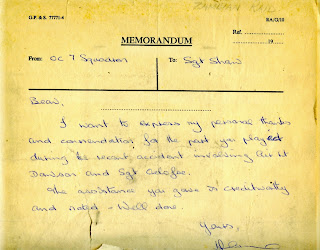 G.P. & S. 77771-4
RA/G/10
MEMORANDUM
Ref.
19
From: OC 7 Squadron
To: Sgt Shaw
I want to express my personal thanks
and commendation for the part you played
during the recent accident involving Air Lt
Dawson and Sgt
The assistance you gave is creditworthy
and noted - Well done.
Yours,